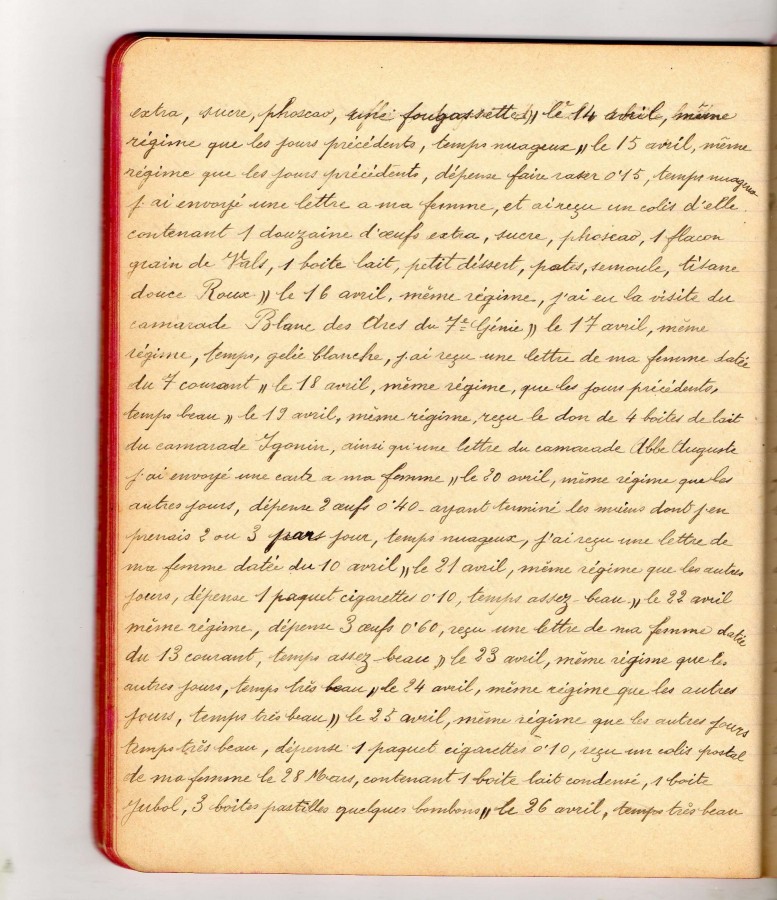 extra, sucre, phoscao, une fougassette,, le 14 avril, même
régime que les jours précédents, temps nuageux,, le 15 avril, même
régime que les jours précédents, dépense faire raser 0'15, temps nuageux
j'ai envoyé une lettre a ma femme, et ai reçu un colis d'elle
contenant 1 douzaine d'œufs extra, sucre, phoscao, 1 flacon
grain de Vals, 1 boite lait, petit déssert, pates, semoule, tisane
douce Roux,, le 16 avril, même régime, j'ai eu la visite du
camarade Blanc des Arcs du 7e Génie,, le 17 avril, même
régime, temps, gelée blanche, j'ai reçu une lettre de ma femme datée
du 7 courant,, le 18 avril, même régime, que les jours précédents,
temps beau,, le 19 avril, même régime, reçu le don de 4 boites de lait
du camarade Igonin, ainsi qu'une lettre du camarade Abbe Auguste
j'ai envoyé une carte a ma femme,, le 20 avril, même régime que les
autres jours, dépense 2 œufs 0'40 - ayant terminé les miens dont j'en
prenais 2 ou 3 pars jour, temps nuageux, j'ai reçu une lettre de
ma femme datée du 10 avril,, le 21 avril, même régime que les autres
jours, dépense 1 paquet cigarettes 0'10, temps assez-beau,, le 22 avril
même régime, dépense 3 œufs 0'60, reçu une lettre de ma femme datée
du 13 courant, temps assez-beau,, le 23 avril, même régime que les
autres jours, temps très beau,, le 24 avril, même régime que les autres
jours, temps très beau,, le 25 avril, même régime que les autres jours
temps très beau, dépense 1 paquet cigarettes 0'10, reçu un colis postal
de ma femme le 28 Mars, contenant 1 boite lait condensé, 1 boite
Jubol, 3 boites pastilles quelques bombons,, le 26 avril, temps très beau